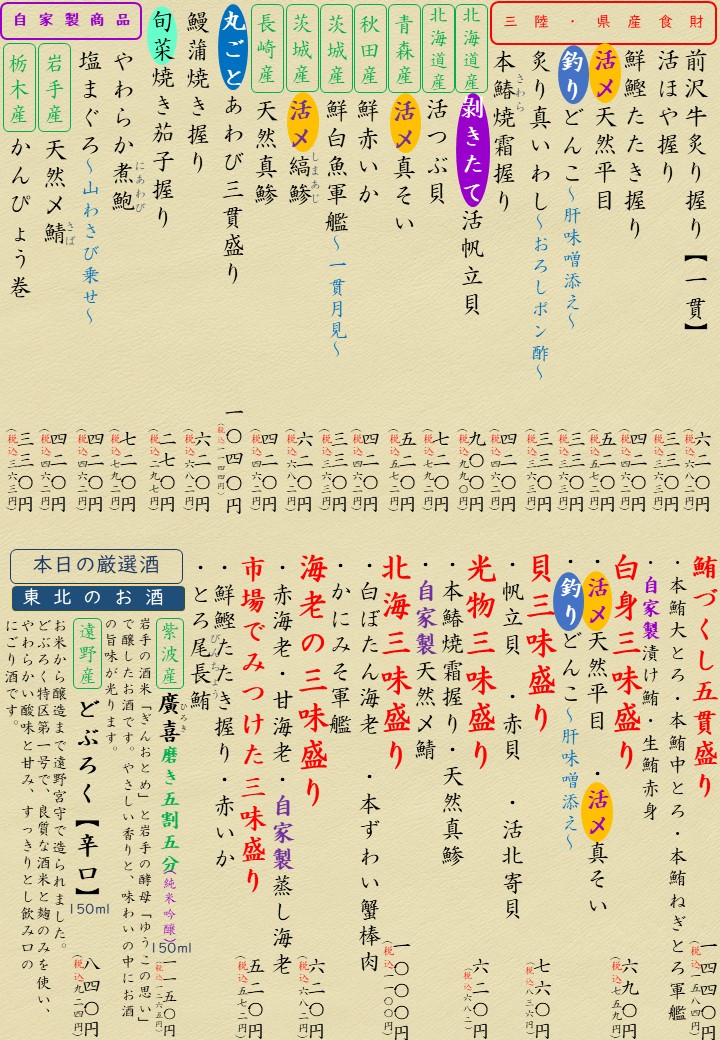 三陸・県産食財
前沢牛炙り握り【一貫】 六二〇円(税込六八二円)
活ほや握り 三三〇円(税込三六三円)
鮮鰹たたき握り 四二〇円(税込四六二円)
活〆天然平目 五二〇円(税込五七二円)
釣りどんこ～肝味噌添え～ 三三〇円(税込三六三円)
炙り真いわし～おろしポン酢～ 三三〇円(税込三六三円)
本鰆焼霜握り 四二〇円(税込四六二円)
さわら
北海道産 剥きたて活帆立貝 九〇〇円(税込九九〇円)
北海道産 活つぶ貝 七二〇円(税込七九二円)
青森産 活〆真そい 五二〇円(税込五七二円)
秋田産 鮮赤いか 四二〇円(税込四六二円)
茨城産 鮮白魚軍艦～一貫月見～ 三三〇円(税込三六三円)
茨城産 活〆縞鯵 六二〇円(税込六八二円)
しまあじ
長崎産 天然真鯵 四二〇円(税込四六二円)
丸ごとあわび三貫盛り 一〇四〇円(税込一一四四円)
鰻蒲焼き握り 六二〇円(税込六八二円)
旬菜焼き茄子握り 二七〇円(税込二九七円)
自家製商品
やわらか煮鮑 七二〇円(税込七九二円)
にあわび
塩まぐろ～山わさび乗せ～ 四二〇円(税込四六二円)
岩手産 天然〆鯖 四二〇円(税込四六二円)
さば
栃木産 かんぴょう巻 三三〇円(税込三六三円)
鮪づくし五貫盛り 一四四〇円(税込一五八四円)
・本鮪大とろ・本鮪中とろ・本鮪ねぎとろ軍艦
・自家製漬け鮪・生鮪赤身
白身三味盛り 六九〇円(税込七五九円)
活〆天然平目 ・活〆真そい
釣りどんこ～肝味噌添え～
貝三味盛り 七六〇円(税込八三六円)
・帆立貝 ・赤貝 ・活北寄貝
光物三味盛り 六二〇円(税込六八二)
・本鰆焼霜握り・天然真鯵
・自家製天然〆鯖
北海三味盛り 一〇〇〇円(税込一一〇〇円)
・白ぼたん海老 ・本ずわい蟹棒肉
・かにみそ軍艦
海老の三味盛り 六二〇円(税込六八二円)
・赤海老・甘海老・自家製蒸し海老
市場でみつけた三味盛り 五二〇円(税込五七二円)
・鮮鰹たたき握り・赤いか
・とろ尾長鮪
びんちょう
本日の厳選酒
東北のお酒
紫波産 廣喜磨き五割五分(純米吟醸)150ml 一一五〇円(税込一二六五円)
ひろき
岩手の酒米「ぎんおとめ」と岩手の酵母「ゆうこの思い」
で醸したお酒です。やさしい香りと、味わいの中にお酒
の旨味が光ります。
遠野産 どぶろく【辛口】150ml 八四〇円(税込九二四円)
お米から醸造まで遠野宮守で造られました。
どぶろく特区第一号で、良質な酒米と麹のみを使い、
やわらかい酸味と甘み、すっきりとし飲み口の
にごり酒です。